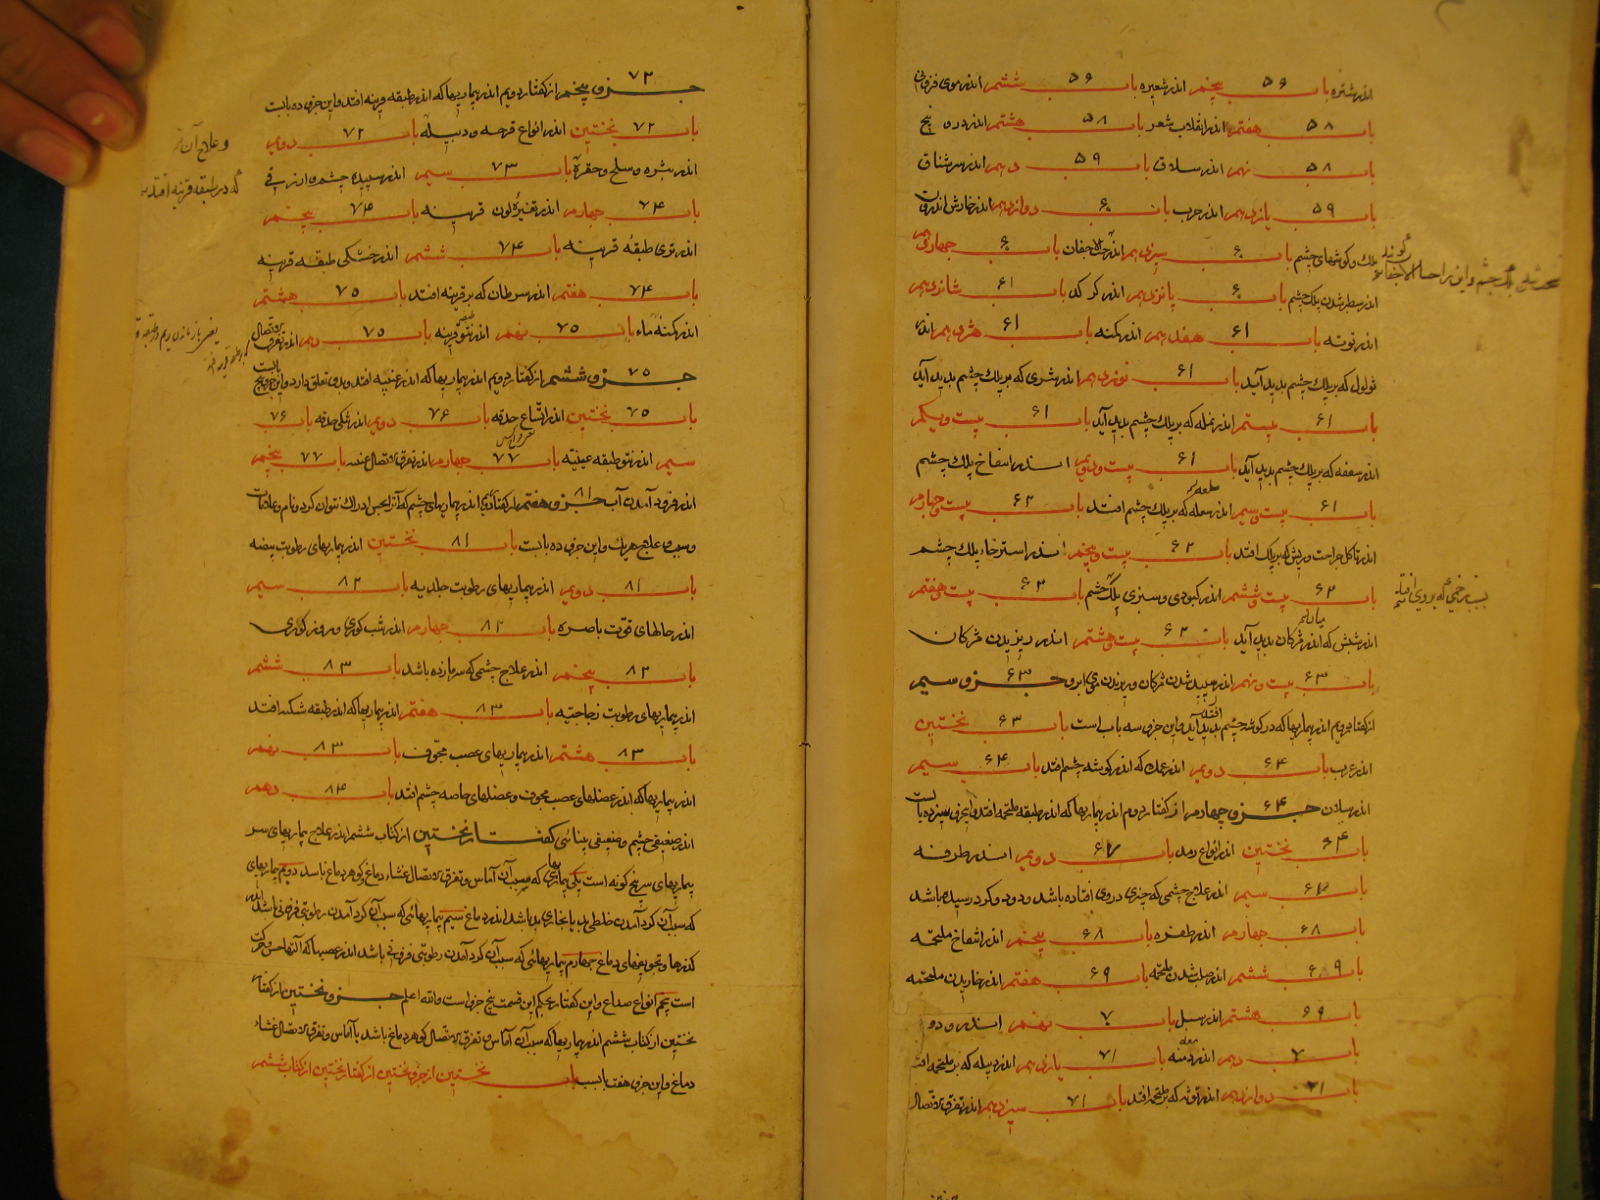 اندر شتره باب ۵۶ پنجم اندر شعیره باب ۵۶ ششم اندر موی فزونی
باب ۵۸ هفتم اندر انقلاب شعر باب ۵۸ هشتم اندر
باب ۵۸ نهم اندر سلاق باب ۵۹ دهم اندر شرناق
باب ۵۹ یازدهم اندر جرب باب ۶۰ دوازدهم اندر خارش اندرون
پلک و گوشهای چشم باب ۶۰ سیزدهم اندر باب ۶۰ چهاردهم
اندر سطبر شدن پلک چشم باب ۶۰ پانزدهم اندر باب ۶۱ شانزدهم
اندر توثه باب ۶۱ هفدهم اندر کمنه باب ۶۱ هژدهم اندر
ثولول که بر پلک چشم پدید آید باب ۶۱ نوزدهم اندر شری که بر پلک چشم پدید آید
باب ۶۱ بیستم اندر نمله که بر پلک چشم پدید آید باب ۶۱ بیست و یکم
اندر سعفه که بر پلک چشم پدید آید باب ۶۱ بیست و دویم اندر انتفاخ پلک چشم
باب ۶۱ بیست و سیم اندر که بر پلک چشم افتد باب ۶۲ بیست و چهارم
اندر تاکل جراحت و ریش که بر پلک افتد باب ۶۲ بیست و پنجم اندر استرخاء پلک چشم
باب ۶۲ بیست و ششم اندر کبودی و سبزی پلک چشم باب ۶۳ بیست و هفتم
اندر شپش که اندر مژکان پدید آید باب ۶۳ بیست و هشتم اندر ریزیدن مژکان
باب ۶۳ بیست و نهم اندر سپید شدن مژکان و ریزیدن موی ابرو جزو سیم ۶۳
از گفتار دویم اندر بیماریها که در گوشه چشم پدید آید و این جزو سه باب است باب ۶۳ نخستین
اندر غرب باب ۶۴ دویم اندر غده که اندر گوشه چشم افتد باب ۶۴ سیم
اندر سیلان جزو چهارم ۶۴ از گفتار دوم اندر بیماریها که اندر طبقه ملتحمه افتد و این جزو سیزده باب است
باب ۶۴ نخستین اندر انواع رمد باب ۶۷ دویم اندر طرفه
باب ۶۷ سیم اندر علاج چشمی که چیزی در وی افتاده باشد و دود و گرد رسیده باشد
باب ۶۸ چهارم اندر ظفره باب ۶۸ پنجم اندر انتفاخ ملتحمه
باب ۶۹ ششم اندر صلب شدن ملتحمه باب ۶۹ هفتم اندر خاریدن ملتحمه
باب ۶۹ هشتم اندر سبل باب ۷۰ نهم اندر ودقه
باب ۷۰ دهم اندر دمعه باب ۷۱ یازدهم اندر دبیله که بر ملتحمه افتد
باب ۷۱ دوازدهم اندر توثه که بر ملتحمه افتد باب ۷۱ سیزدهم اندر تفرق الاتصال
گویند
پلک چشم و این را
جزو پنجم ۷۲ از گفتار دویم اندر بیماریها که اندر طبقه قرنیه افتد و این جزو ده بابت
باب ۷۲ نخستین اندر انواع قرحه و دبیله باب ۷۲ دویم
اندر بثره و سلخ و حفره باب ۷۳ سیم اندر سپیده چشم و ازرقی
باب ۷۴ چهارم اندر تغیر لون قرنیه باب ۷۴ پنجم
اندر تری طبقه قرنیه باب ۷۴ ششم اندر خشکی طبقه قرنیه
باب ۷۴ هفتم اندر سرطان که بر قرنیه افتد باب ۷۵ هشتم
اندر کمنه ماء باب ۷۵ نهم اندر نتو قرنیه باب ۷۵ دهم اندر تفرق الاتصال
جزو ششم ۷۵ از گفتار دویم اندر بیماریها که اندر عنبیه افتد و بدو تعلق دارد و این جزو پنج بابت
باب ۷۵ نخستین اندر اتساع حدقه باب ۷۶ دویم اندر تنگی حدقه باب ۷۶
سیم اندر نتو طبقه عنبیه باب ۷۷ چهارم اندر تفرق الاتصال عنبیه باب ۷۷ پنجم
اندر فرود آمدن آب جزو هفتم ۸۱ از گفتار دویم اندر بیماریهای چشم که آنرا بحس ادراک نتوان کرد و نام و علامات
و سبب و علاج هر یک و این جزو ده بابت باب ۸۱ نخستین اندر بیماریهای رطوبت بیضه
باب ۸۱ دویم اندر بیماریهای رطوبت جلدیه باب ۸۲ سیم
اندر حالهای قوت باصره باب ۸۲ چهارم اندر شب کوری و روز کوری
باب ۸۲ پنجم اندر علاج چشمی که سرما زده باشد باب ۸۳ ششم
اندر بیماریهای رطوبت زجاجیه باب ۸۳ هفتم اندر بیماریها که اندر طبقه شبکیه افتد
باب ۸۳ هشتم اندر بیماریهای عصب مجوف باب ۸۳ نهم
اندر بیماریها که اندر عضلهای عصب مجوف و عضلهای خاصه چشم افتد باب ۸۴ دهم
اندر ضعیفی چشم و ضعیفی بینائی گفتار نخستین از کتاب ششم اندر علاج بیماریهای سر
بیماریهای سر پنج گونه است یکی بیماریها که سبب آن آماس و تفرق الاتصال غشاء دماغ و گوهر دماغ باشد دویم بیماریهای
که سبب آن گرد آمدن خلطی بد یا بخاری بد باشد اندر دماغ سیم بیماریهائی که سبب آن گرد آمدن رطوبتی فزونی باشد اندر
گذرها و تجویفهای دماغ چهارم بیماریهائی که سبب آن گرد آمدن رطوبتی فزونی باشد اندر عصبها که آلتهاء حس و حرکت
است پنجم انواع صداع و این گفتار بحکم این قسمت پنج جزو است والله اعلم جزو نخستین از گفتار
نخستین از کتاب ششم اندر بیماریها که سبب آن آماس و تفرق الاتصال گوهر دماغ باشد یا آماس و تفرق الاتصال غشاء
دماغ و این جزو هفت بابست باب نخستین از جزو نخستین از گفتار نخستین از کتاب ششم
و علاج آن
که در طبقه قرنیه افتد